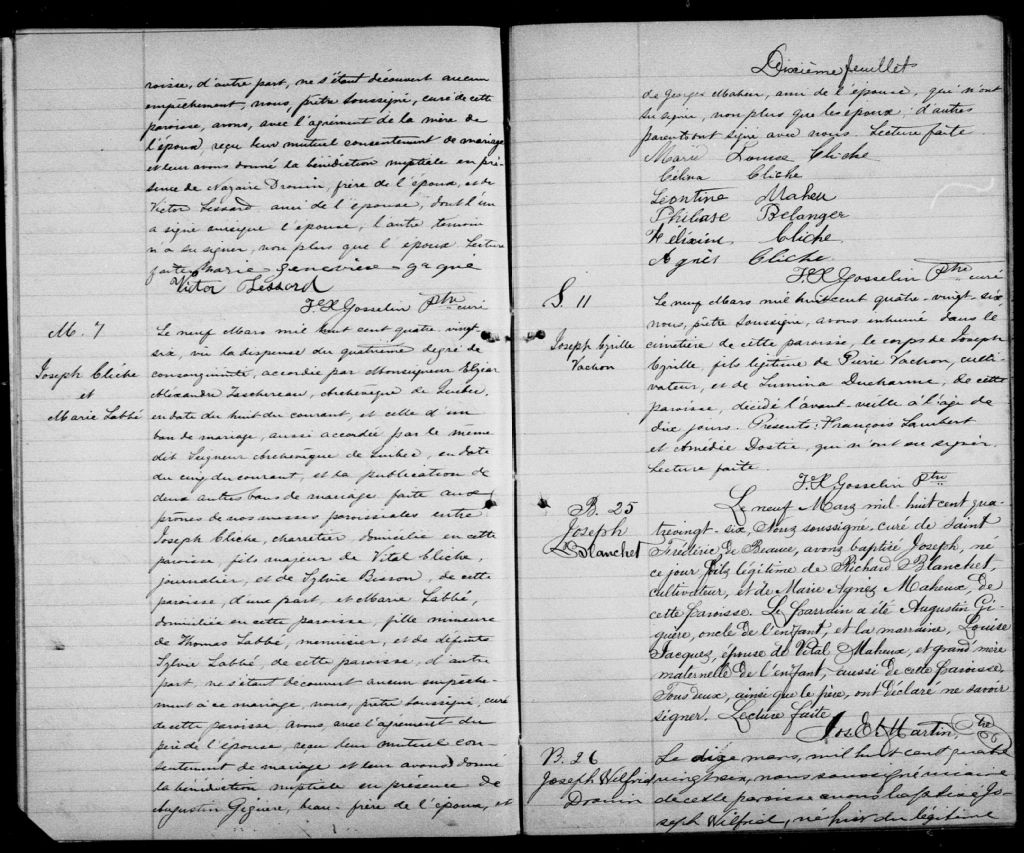 roisse, d'autre part, ne s'étant découvert aucun
empêchement, nous, prêtre soussigné, curé de cette
paroisse, avons, avec l'agrément de la mère de
l'époux, reçu leur mutuel consentement de mariage
et leur avons donné la bénédiction nuptiale en pré-
sence de Nazaire Drouin, frère de l'époux, et de
Victor Lessard ami de l'épouse, dont l'un
a signé avec l'épouse, l'autre temoin
n'a su signer, non plus que l'époux. Lecture
faite Marie - Geneviève - gagné
Victor Lessard
F.X Gosselin Ptre curé
M. 7
Joseph Cliche
et
Marie Labbé
Le neuf Mars mil huit cent quatre-vingt-
six, vu la dispense du quatrième degré de
consanguinité, accordée par Monseigneur Elzéar
Alexandre Taschereau, archevêque de Québec,
en date du huit du courant, et celle d'un
ban de mariage, aussi accordée par le même
dit Seigneur Archevêque de Québec, en date
du cinq du courant, et la publication de
deux autres bans de mariage faite aux
prônes de nos messes paroissiales entre
Joseph Cliche, charretier, domicilié en cette
paroisse, fils majeur de Vital Cliche,
journalier, et de Sylvie Bisson, de cette
paroisse, d'une part, et Marie Labbé,
domiciliée en cette paroisse, fille mineure
de Thomas Labbé, menuisier, et de défunte
Sylvie Labbé, de cette paroisse, d'autre
part, ne s'étant découvert aucun empêche-
ment à ce mariage, nous, prêtre soussigné, curé
de cette paroisse avons, avec l'agrément du
père de l'épouse, reçu leur mutuel con-
sentement de mariage et leur avons donné
la bénédiction nuptiale en présence de
Augustin Giguère, beau-frère de l'époux, et
Dixième feuillet
de Georges Maheu, ami de l'épouse, qui n'ont
su signer, non plus que les époux; d'autres
parents ont signé avec nous. Lecture faite
Marie Louise Cliche
Celina Cliche
Léontine Maheu
Philiase Belanger
Cliche
Agnès Cliche
F.X Gosselin Ptre curé
S. 11
Joseph Cyrille
Vachon
Le neuf Mars mil huit cent quatre-vingt-six
nous, prêtre soussigné, avons inhumé dans le
cimetière de cette paroisse, le corps de Joseph
Cyrille, fils légitime de Pierre Vachon, culti-
vateur, et de Lumina Ducharme, de cette
paroisse, décédé l'avant-veille à l'âge de
dix jours. Présents: François Lambert
et Amédée Dostie, qui n'ont su signer.
Lecture faite.
F.X Gosselin Ptre
B. 25
Joseph
Blanchet
Le neuf Mars mil huit cent qua-
trevingt-six, Nous soussigné, curé de Saint
Frédéric de Beauce, avons baptisé Joseph, né
ce jour, fils légitime de Richard Blanchet,
cultivateur, et de Marie Agnès Maheux, de
cette paroisse. Le Parrain a été Augustin Gi-
guère, oncle de l'enfant, et la marraine, Louise
Jacques, épouse de Vital Maheux, et grand'mère
maternelle de l'enfant, aussi de cette paroisse,
Tous deux, ainsi que le père, ont déclaré ne savoir
signer. Lecture faite
Jos. E. Martin, Ptre
B. 26
Joseph Wilfrid
Drouin
Le dix mars, mil huit cent quatre
vingt six, nous soussigné vicaire
de cette paroisse avons baptisé Jo-
seph Wilfrid, né hier du légitime